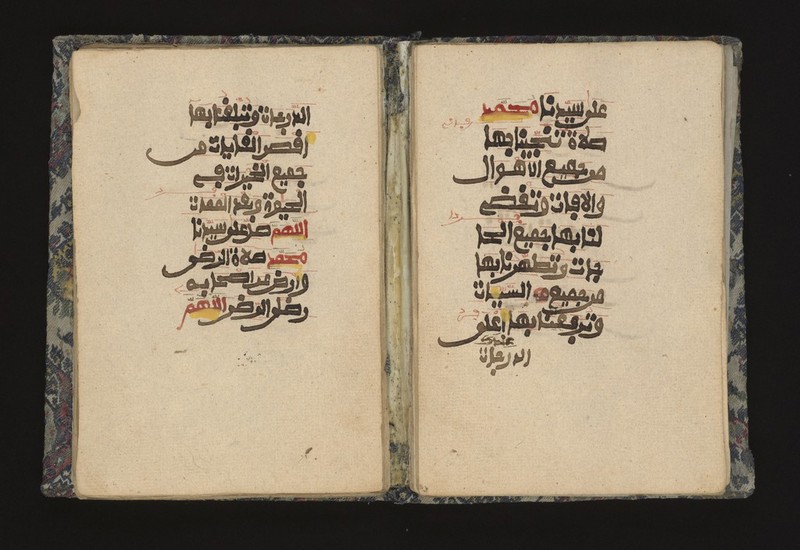 على سيدنا محمد
صلاة تنجينا بها
من جميع الاهوال
والافات وتقضى
لنا بها جميع الحا
جات وتطهرنا بها
من جميع السيئات
وترفعنا بها اعلى
الدرجات
الدرجات وتبلغنا بها
اقصى الغايات من
جميع الخيرات في
الحيوة وبعد الممات
اللهم صل على سيدنا
محمد صلاة الرضى
وارض عن اصحابه
رضا الرضى اللهم